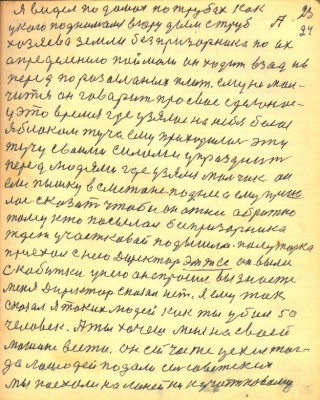 Я видел по домах по трубах как
А 23
24
у кого поднимали вгору дым с труб
хозяева земли безпризорника по их
определению поймали он ходит взад и в
перед по розасланых плит. ему не мол
чится он говорит про свае сделоное
у это время где узялась на небе белая
яблоком туча ему приходилось эту
тучу своими силами упразднит
перед людями где узялся молчик он
ему пышку в сметане поднёс а ему пришлось
сказать чтобы он отнёс обратно
тому кто посылал безпризорника
ждет участковай подвышла полуторка
приехал с нею Директор они были
с кабитки у него он спросил вы знаете
меня Директор сказал нет. Я ему так
сказал я таких людей как ты убил 50
человек. А ты хочеш меня на своей
машине везти. он сей час же уехал тог
да лошадей подали си советских
мы поехали на линейки к участковому